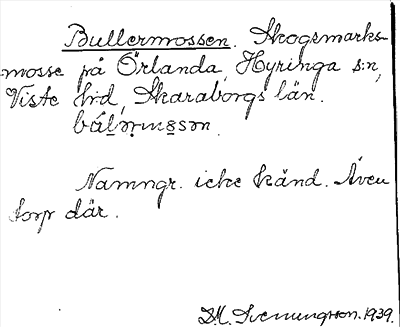 Bullermossen. Skogsmarks-
mosse på Örlanda, Hyringa s:n,
Viste hd, Skaraborgs län.
Namngr. icke känd. Även
torp där.
D.M. Svenungsson. 1939.